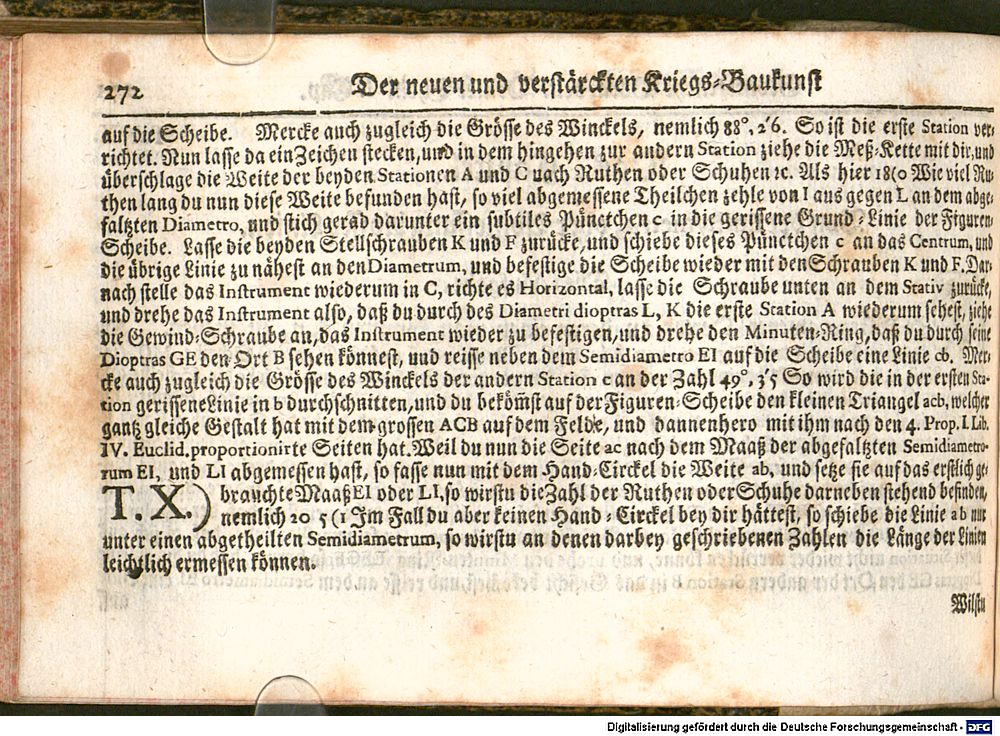 272 Der neuen und verstärckten Kriegs-Baukunst
auf die Scheibe. Mercke auch zugleich die Grösse des Winckels, nemlich 88°, 2'6. So ist die erste Station ver-
richtet. Nun lasse da ein Zeichen stecken, und in dem hingehen zur andern Station ziehe die Meß-Kette mit dir, und
überschlage die Weite der beyden Stationen A und C nach Ruthen oder Schuhen ꝛc. Als hier 18(0 Wie viel Ru-
then lang du nun diese Weite befunden hast, so viel abgemessene Theilchen zehle von I aus gegen L an dem abge-
faltzten Diametro, und stich gerad darunter ein subtiles Pünctchen c in die gerissene Grund-Linie der Figuren-
Scheibe. Lasse die beyden Stellschrauben K und F zurücke, und schiebe dieses Pünctchen c an das Centrum, und
die übrige Linie zu nähest an den Diametrum, und befestige die Scheibe wieder mit den Schrauben K und F. Dar-
nach stelle das Instrument wiederum in C, richte es Horizontal, lasse die Schraube unten an dem Stativ zurücke,
und drehe das Instrument also, daß du durch des Diametri dioptras L, K die erste Station A wiederum sehest, ziehe
die Gewind-Schraube an, das Instrument wieder zu befestigen, und drehe den Minuten-Ring, daß du durch seine
Dioptras GE den Ort B sehen könnest, und reisse neben dem Semidiametro EI auf die Scheibe eine Linie cb. Mer-
cke auch zugleich die Grösse des Winckels der andern Station c an der Zahl 49°, 3'5 So wird die in der ersten Sta-
tion gerissene Linie in b durchschnitten, und du bekom̃st auf der Figuren-Scheibe den kleinen Triangel acb, welcher
gantz gleiche Gestalt hat mit dem grossen ACB auf dem Felde, und dannenhero mit ihm nach den 4. Prop. I. Lib.
IV. Euclid. proportionirte Seiten hat. Weil du nun die Seite ac nach dem Maaß der abgefaltzten Semidiametro-
rum EI, und LI abgemessen hast, so fasse nun mit dem Hand-Circkel die Weite ab, und setze sie auf das erstlich ge-
T. X.) brauchte Maaß EI oder LI, so wirstu die Zahl der Ruthen oder Schuhe darneben stehend befinden,
nemlich 20 5 (1 Im Fall du aber keinen Hand-Circkel bey dir hättest, so schiebe die Linie ab nur
unter einen abgetheilten Semidiametrum, so wirstu an denen darbey geschriebenen Zahlen die Länge der Linien
leichtlich ermessen können.
Wilstu
Digitalisierung gefördert durch die Deutsche Forschungsgemeinschaft - DFG